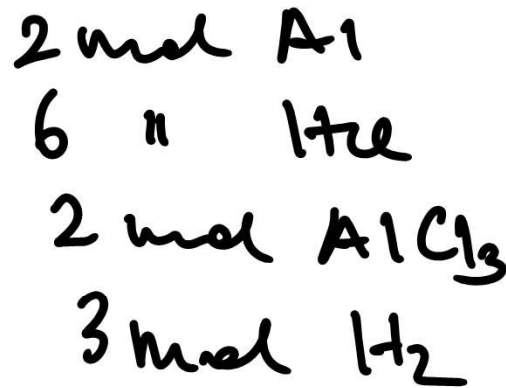 2 mol Al
6 " HCl
2 mol AlCl₃
3 mol H₂